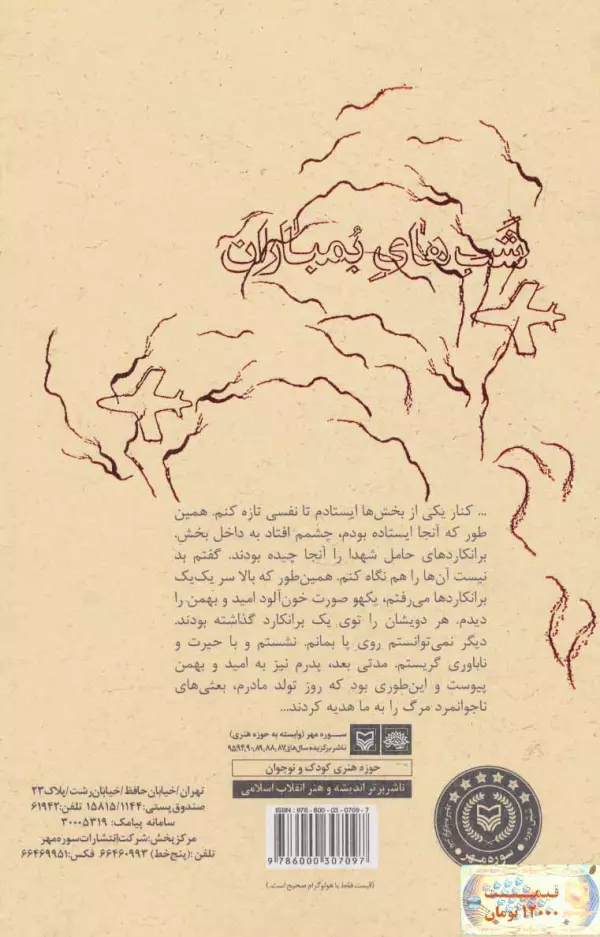 شَب‌های بُمباران
... کنار یکی از بخش‌ها ایستادم تا نفسی تازه کنم. همین
طور که آنجا ایستاده بودم، چشمم افتاد به داخل بخش.
برانکاردهای حامل شهدا را آنجا چیده بودند. گفتم بد
نیست آن‌ها را هم نگاه کنم. همین‌طور که بالا سر یک‌یک
برانکاردها می‌رفتم، یکهو صورت خون‌آلود امید و بهمن را
دیدم. هر دویشان را توی یک برانکارد گذاشته بودند.
دیگر نمی‌توانستم روی پا بمانم. نشستم و با حیرت و
ناباوری گریستم. مدتی بعد، پدرم نیز به امید و بهمن
پیوست و این‌طوری بود که روز تولد مادرم، بعثی‌های
ناجوانمرد مرگ را به ما هدیه کردند...
ســوره مهر (وابسته به حوزه هنری)
ناشر برگزیده سال‌های ۸۷، ۸۸، ۸۹، ۹۰، ۹۴ و ۹۵
حوزه هنری کودک و نوجوان
ناشر برتر اندیشه و هنر انقلاب اسلامی
تهران/خیابان حافظ/خیابان رشت/پلاک ۲۳
صندوق پستی: ۱۵۸۱۵/۱۱۴۴ تلفن: ۶۱۹۴۲
سامانه پیامک: ۳۰۰۰۵۳۱۹
مرکز پخش: شرکت انتشارات سوره مهر
تلفن: (پنج خط) ۶۶۴۶۰۹۹۳ فکس: ۶۶۴۶۹۹۵۱
ISBN: 978-600-03-0709-7
9 786000 307097
(قیمت فقط با هولوگرام صحیح است.)
سوره مهر
قیمــت
۱۲۰۰۰ تومان